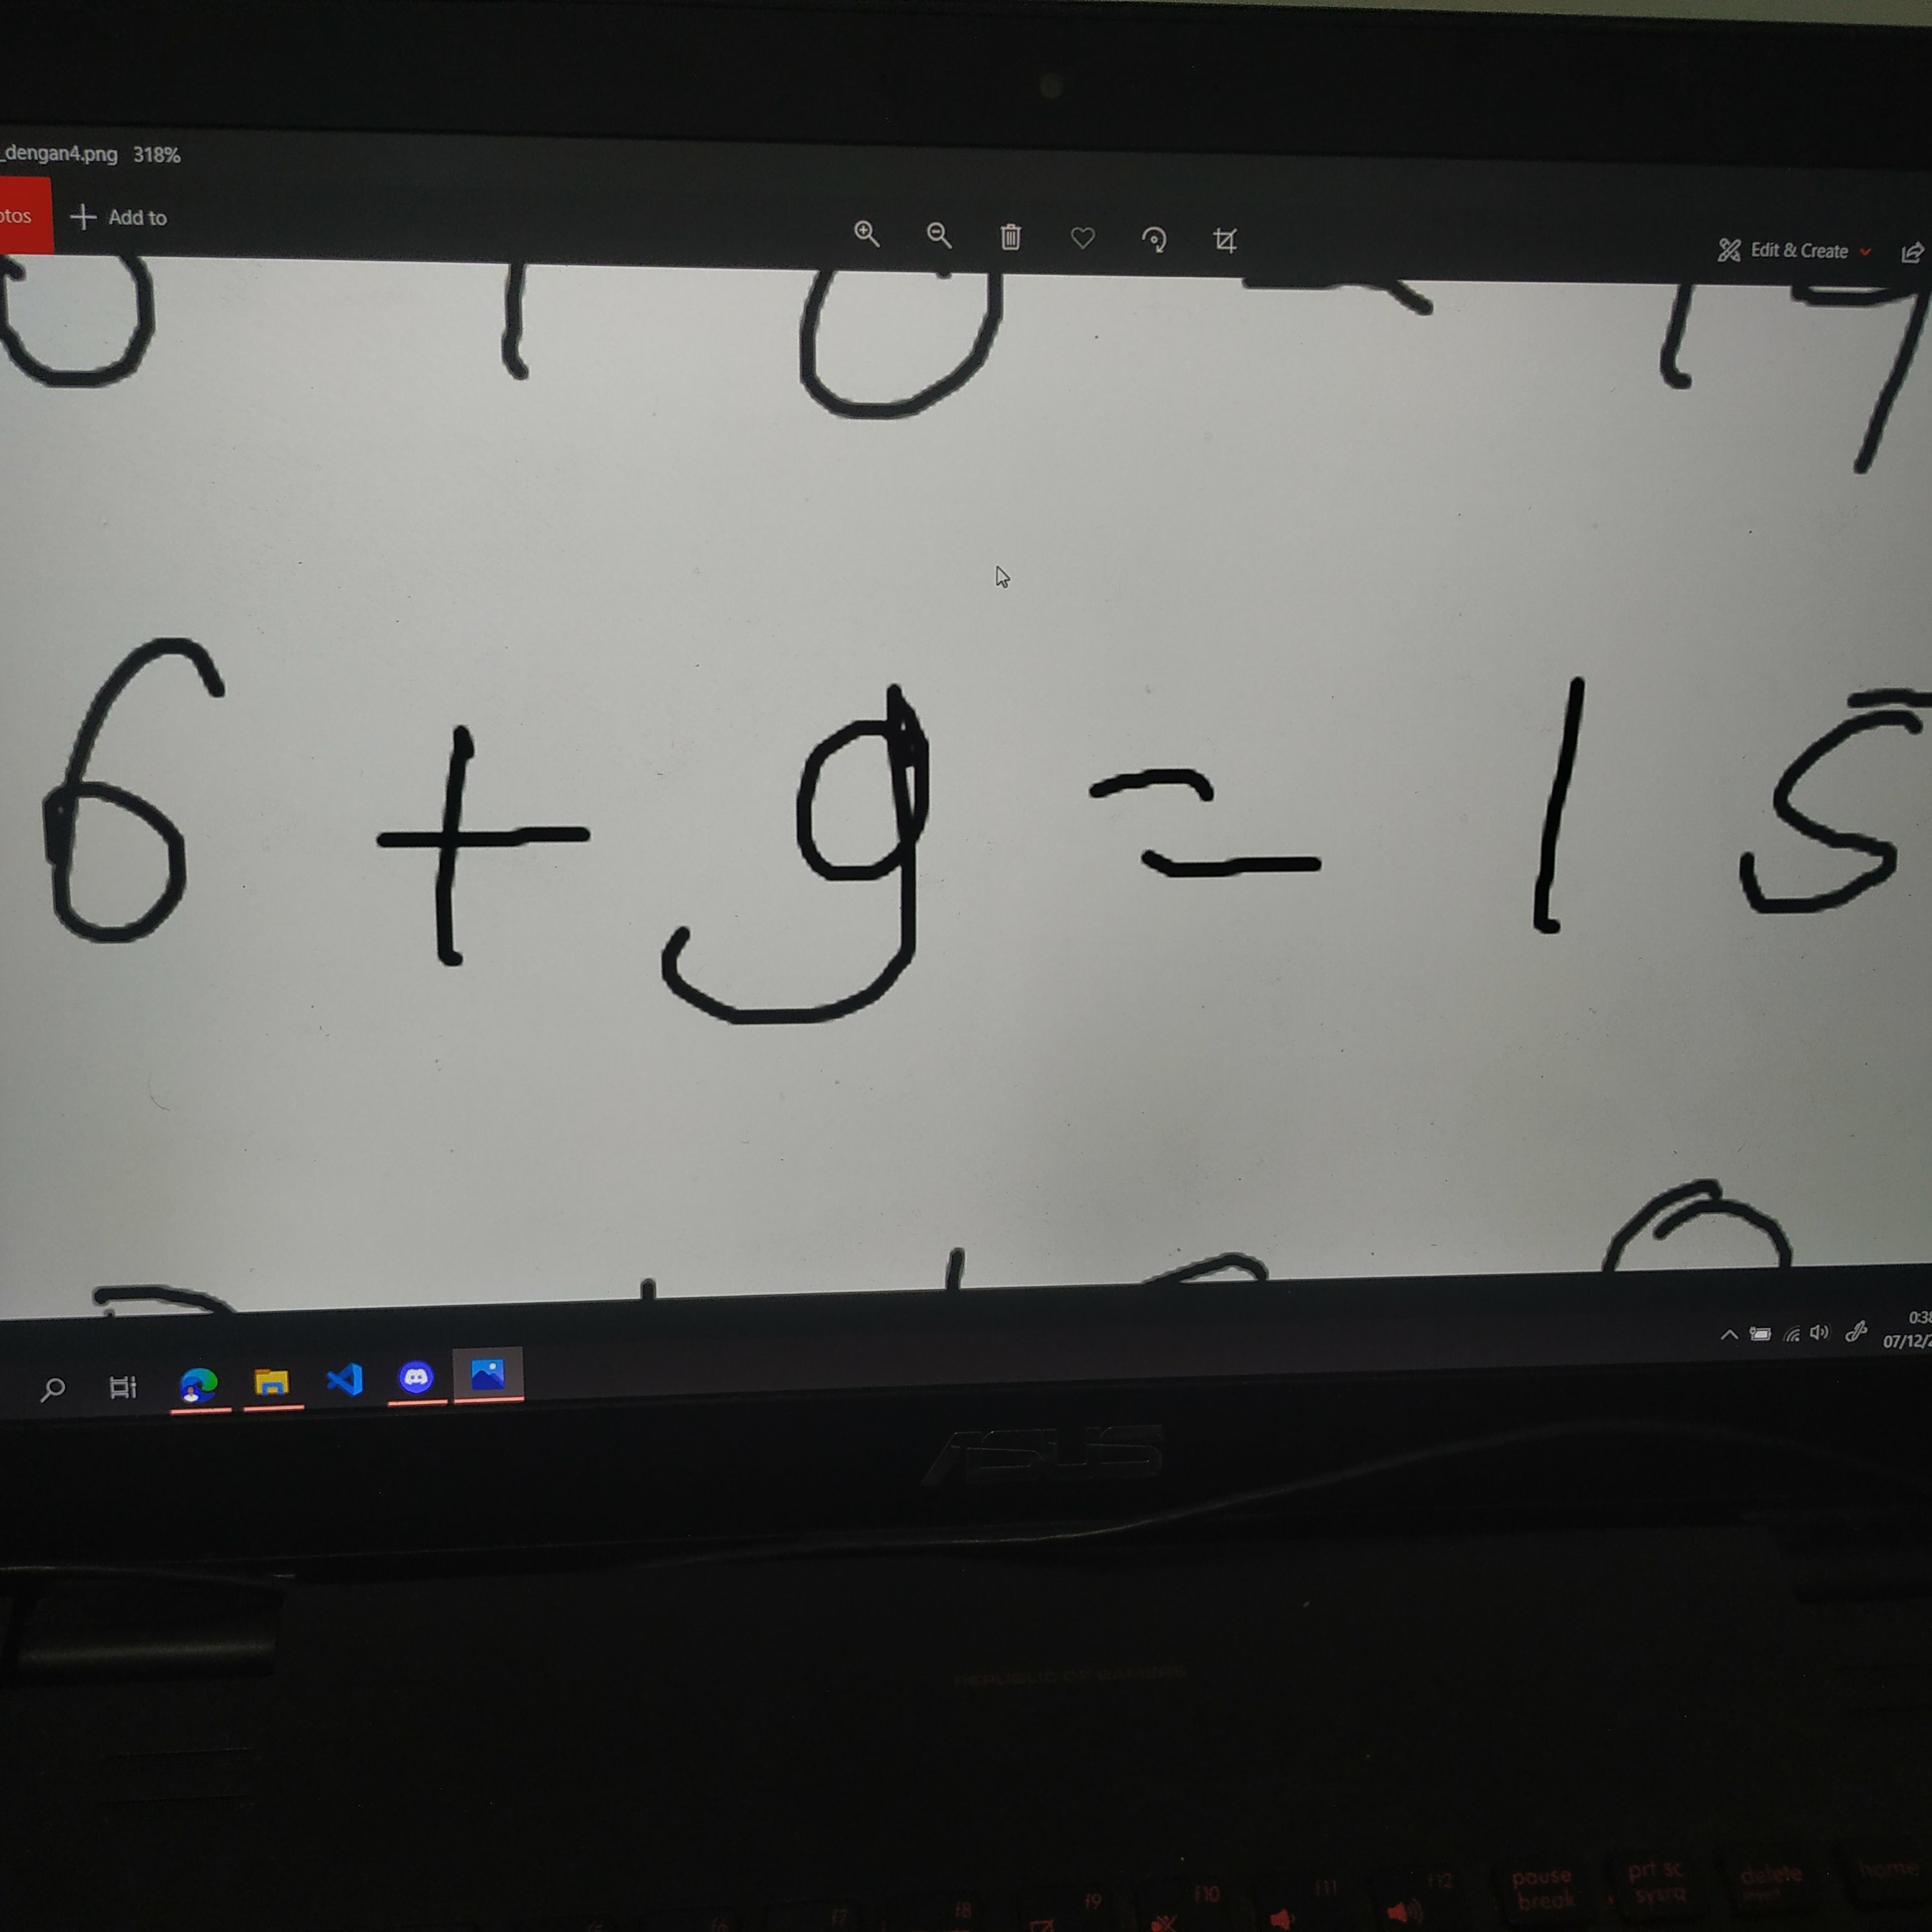 _dengan4.png 318%
otos Add to
Edit & Create
6 + 9 = 15
0:38
07/12/2
ASUS
REPUBLIC OF GAMERS
f7 f8 f9 f10 f11 f12 pause break prt sc sysrq delete home